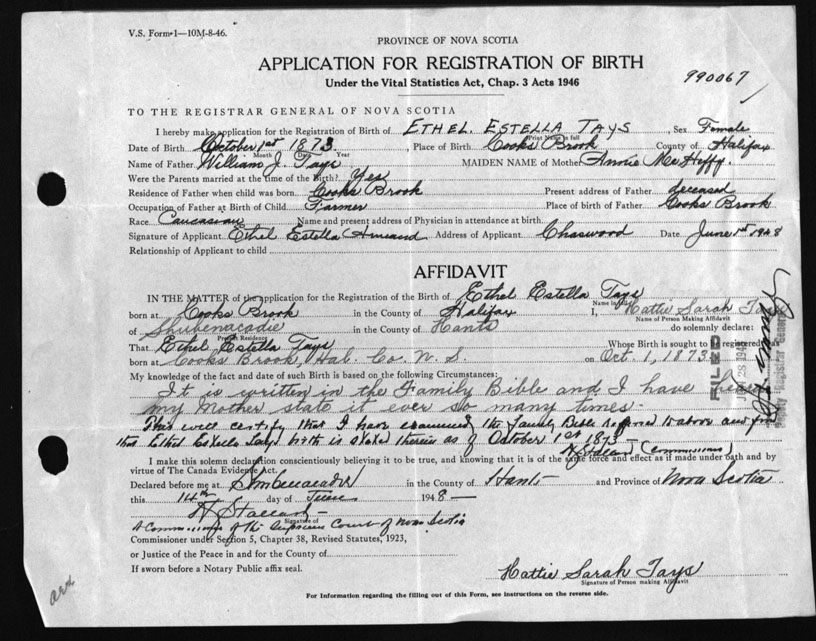 V.S. Form 1—10M-8-46.
PROVINCE OF NOVA SCOTIA
APPLICATION FOR REGISTRATION OF BIRTH
Under the Vital Statistics Act, Chap. 3 Acts 1946
990067
TO THE REGISTRAR GENERAL OF NOVA SCOTIA
I hereby make application for the Registration of Birth of ETHEL. ESTELLA TAYS, Sex Female
Print Name in full
Date of Birth October 1st 1873, Place of Birth Cooks Brook County of Halifax
Month Date Year
Name of Father William J. Tays MAIDEN NAME of Mother Annie
Were the Parents married at the time of the Birth? Yes
Residence of Father when child was born Cooks Brook Present address of Father deceased
Occupation of Father at Birth of Child Farmer Place of birth of Father Cooks Brook
Race Caucasian Name and present address of Physician in attendance at birth
Signature of Applicant Ethel Estella Address of Applicant Chaswood Date June 1st 1948
Relationship of Applicant to child
AFFIDAVIT
IN THE MATTER of the application for the Registration of the Birth of Ethel Estella Tays
Name in full
born at Cooks Brook in the County of Halifax I, Hattie Sarah Tays
Name of Person Making Affidavit
of Shubenacadie in the County of Hants do solemnly declare:
Present Residence
That Ethel Estella Tays Whose Birth is sought to be registered was
born at Cooks Brook, Hal. Co. N. S. on Oct. 1, 1873
My knowledge of the fact and date of such Birth is based on the following Circumstances:
It is written in the Family Bible and I have heard
my Mother state it ever so many times.
This will certify that I have examined the family Bible referred to above and find
that Ethel Estella Tays birth is stated therein as of October 1st 1873
(Commissioner)
I make this solemn declaration conscientiously believing it to be true, and knowing that it is of the same force and effect as if made under oath and by
virtue of The Canada Evidence Act.
Declared before me at Shubenacadie in the County of Hants and Province of Nova Scotia
this 14th day of June 1948
Signature of
A Commissioner of the Supreme Court of Nova Scotia
Commissioner under Section 5, Chapter 38, Revised Statutes, 1923,
or Justice of the Peace in and for the County of
If sworn before a Notary Public affix seal.
Hattie Sarah Tays
Signature of Person making Affidavit
For Information regarding the filling out of this Form, see instructions on the reverse side.
FILED
Deputy Registrar General